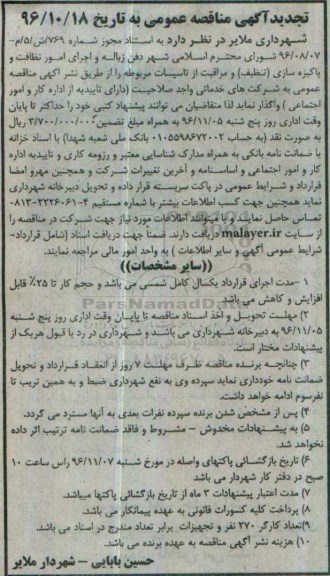 تجدیدآگهی مناقصه عمومی به تاریخ ۹۶/۱۰/۱۸
شهرداری ملایر در نظر دارد به استناد مجوز شماره ۷۶۹/ش/۵/م-
۹۶/۰۸/۰۷ شورای محترم اسلامی شهر دفن زباله و اجرای امور نظافت و
پاکیزه سازی (تنظیف) و مراقبت از تاسیسات مربوطه را از طریق نشر آگهی مناقصه
عمومی به شرکت های خدماتی واجد صلاحیت (دارای تاییدیه از اداره کار و امور
اجتماعی ) واگذار نماید لذا متقاضیان می توانند پیشنهاد کتبی خود را حداکثر تا پایان
وقت اداری روز پنج شنبه ۹۶/۱۱/۰۵ به همراه مبلغ تضمین ۳/۷۰۰/۰۰۰/۰۰۰ ریال
به صورت نقد (به حساب ۰۱۰۵۵۹۸۶۷۲۰۰۲ بانک ملی شعبه شهدا) یا اسناد خزانه
یا ضمانت نامه بانکی به همراه مدارک شناسایی معتبر و رزومه کاری و تاییدیه اداره
کار و امور اجتماعی و اساسنامه و آخرین تغییرات شرکت و همچنین مهرو امضا
قرارداد و شرایط عمومی در پاکت سربسته قرار داده و تحویل دبیرخانه شهرداری
نماید همچنین جهت کسب اطلاعات بیشتر با شماره مستقیم ۴-۲۲۲۶۰۶۱-۰۸۱۳
تماس حاصل نمایند و یا میتوانند اطلاعات مورد نیاز جهت شرکت در مناقصه را
از سایت malayer.ir دریافت دارند. ضمناً جهت دریافت اسناد (شامل قرارداد-
شرایط عمومی آگهی و سایر اطلاعات ) به واحد امور مالی مراجعه نمایند.
((سایر مشخصات))
۱ -مدت اجرای قرارداد یکسال کامل شمسی می باشد و حجم کار تا ۲۵٪ قابل
افزایش و کاهش می باشد
۲) مهلت تحویل و أخذ اسناد مناقصه تا پایان وقت اداری روز پنج شنبه
۹۶/۱۱/۰۵ به دبیرخانه شهرداری می باشد و شهرداری در رد یا قبول هریک از
پیشنهادات مختار است.
۳) چنانچه برنده مناقصه ظرف مهلت ۷ روز از انعقاد قرارداد و تحویل
ضمانت نامه خودداری نماید سپرده وی به نفع شهرداری ضبط و به همین تریب تا
نفرسوم ادامه خواهد داشت.
۴) پس از مشخص شدن برنده سپرده نفرات بعدی به آنها مسترد می گردد.
۵) به پیشنهادات مخدوش - مشروط و فاقد ضمانت نامه ترتیب اثر داده
نخواهد شد.
۶) تاریخ بازگشائی پاکتهای واصله در مورخ شنبه ۹۶/۱۱/۰۷ راس ساعت ۱۰
صبح در دفتر کار شهردار می باشد
۷) مدت اعتبار پیشنهادات ۳ ماه از تاریخ بازگشائی پاکتها میباشد.
۸) پرداخت کلیه کسورات قانونی به عهده پیمانکار می باشد.
۹)تعداد کارگر ۲۷۰ نفر و تجهیزات برابر تعداد مندرج در اسناد می باشد.
۱۰) هزینه نشر آگهی مناقصه به عهده برنده می باشد.
حسین بابایی - شهردار ملایر